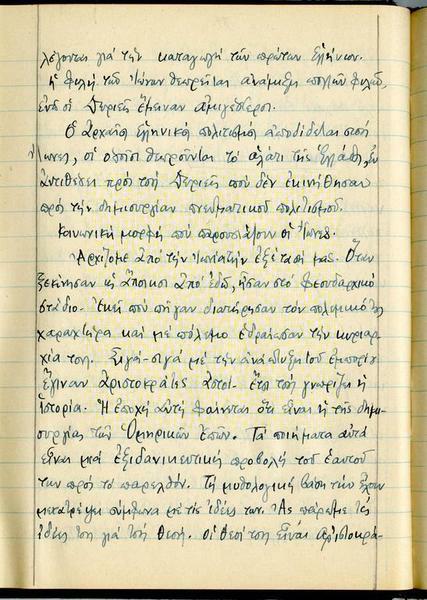 λέγονται γιά τήν καταγωγή τῶν πρώτων Ἑλλήνων.
Ἡ φυλή τῶν Ἰώνων θεωρεῖται ἀνάμιξη πολλῶν φυλῶν,
ἐνῶ οἱ Δωριεῖς ἔμειναν ἀμιγέστεροι.
Ὁ ἀρχαῖος ἑλληνικός πολιτισμός ἀποδίδεται στούς
Ἴωνες, οἱ ὁποῖοι θεωροῦνται τό ἁλάτι τῆς Ἑλλάδος, ἐν
ἀντιθέσει πρός τούς Δωριεῖς πού δέν ἐκινήθησαν
πρός τήν δημιουργίαν πνευματικοῦ πολιτισμοῦ.
Κοινωνική μορφή πού παρουσιάζουν οἱ Ἴωνες.
Ἀρχίζομε ἀπό τήν Ἰωνία τήν ἐξέτασή μας. Ὅταν
ξεκίνησαν οἱ ἄποικοι ἀπό ἐδῶ, ἦσαν στό φεουδαρχικό
στάδιο. Ἐκεῖ πού πῆγαν διατήρησαν τόν πολεμικό τους
χαρακτήρα καί μέ πόλεμο ἑδραίωσαν τήν κυριαρ-
χία τους. Σιγά-σιγά μέ τήν ἀνάπτυξη τοῦ ἐμπορίου
ἔγιναν ἀριστοκράτες ἀστοί. Ἔτσι τούς γνωρίζει ἡ
ἱστορία. Ἡ ἐποχή αὐτή φαίνεται ὅτι εἶναι ἡ τῆς δημι-
ουργίας τῶν Ὁμηρικῶν Ἐπῶν. Τά ποιήματα αὐτά
εἶναι μιά ἐξιδανικευτική προβολή τοῦ ἑαυτοῦ
των πρός τό παρελθόν. Τή μυθολογική βάση τήν ἔχουν
μετατρέψει σύμφωνα μέ τίς ἰδέες των. Ἄς πάρωμε τίς
ἰδέες των γιά τούς θεούς. Οἱ θεοί των εἶναι ἀριστοκρά-